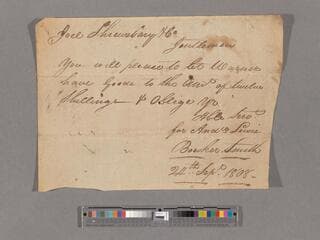 Joel Shrewsbury & Co
Gentlemen
You will please to let Warner
have Goods to the Amt. of twelve
Shillings & Oblige Yr.
Hble Ser
for And & Lewis
Booker Smith
24th Sept. 1808